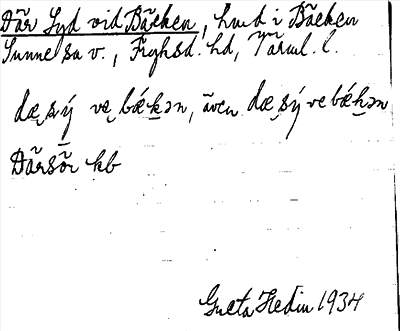 Där Syd vid Bäcken, hmd i Bäcken
Sunne sn v., Fryksd. hd, Värml. l.
dæ̣ sý vẹ bǽḵən, även dæ̣ sý ve bǽḵən
Därsör kb
Greta Hedin 1934